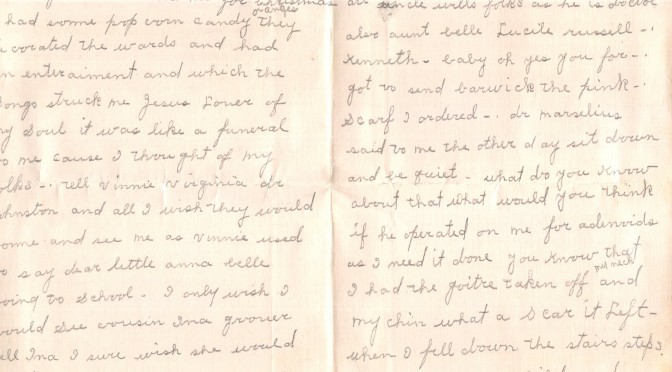 for Christmas
oranges
had some pop corn candy they
corated the wards and had
n entertaiment and which the
songs struck me Jesus Lover of
my Soul it was like a funeral
to me cause I thought of my
olks -. tell Vinnie Virginia dr
ohnston and all I wish they would
come and see me as Vinnie used
to say dear little anna belle
going to School - I only wish I
would See cousin Ina grouer
ell Ina I sure wish she would
uncle wills folks as he is doctor
also aunt belle Lucile russell -.
Kenneth - baby oh yes you for -.
got to send barwick the pink -.
Scarf I ordered -. dr marselius
said to me the other day sit down
and be quiet - what do you know
about that what would you think
if he operated on me for adenoids
as I need it done you know that
I had the goitre taken off my neck and
my chin what a Scar it Left -
when I fell down the stairs steps?